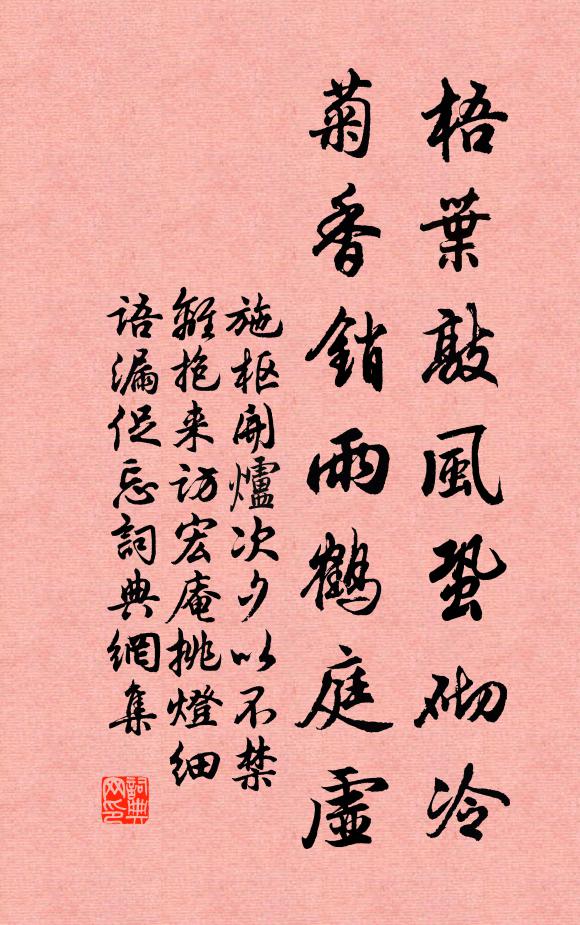 梧葉敲風蛩砌冷
菊香銷雨鶴庭虛
施枢開爐次夕以不禁
離抱来访宏庵挑燈细
语漏促忘詞典網集
詞典
网印